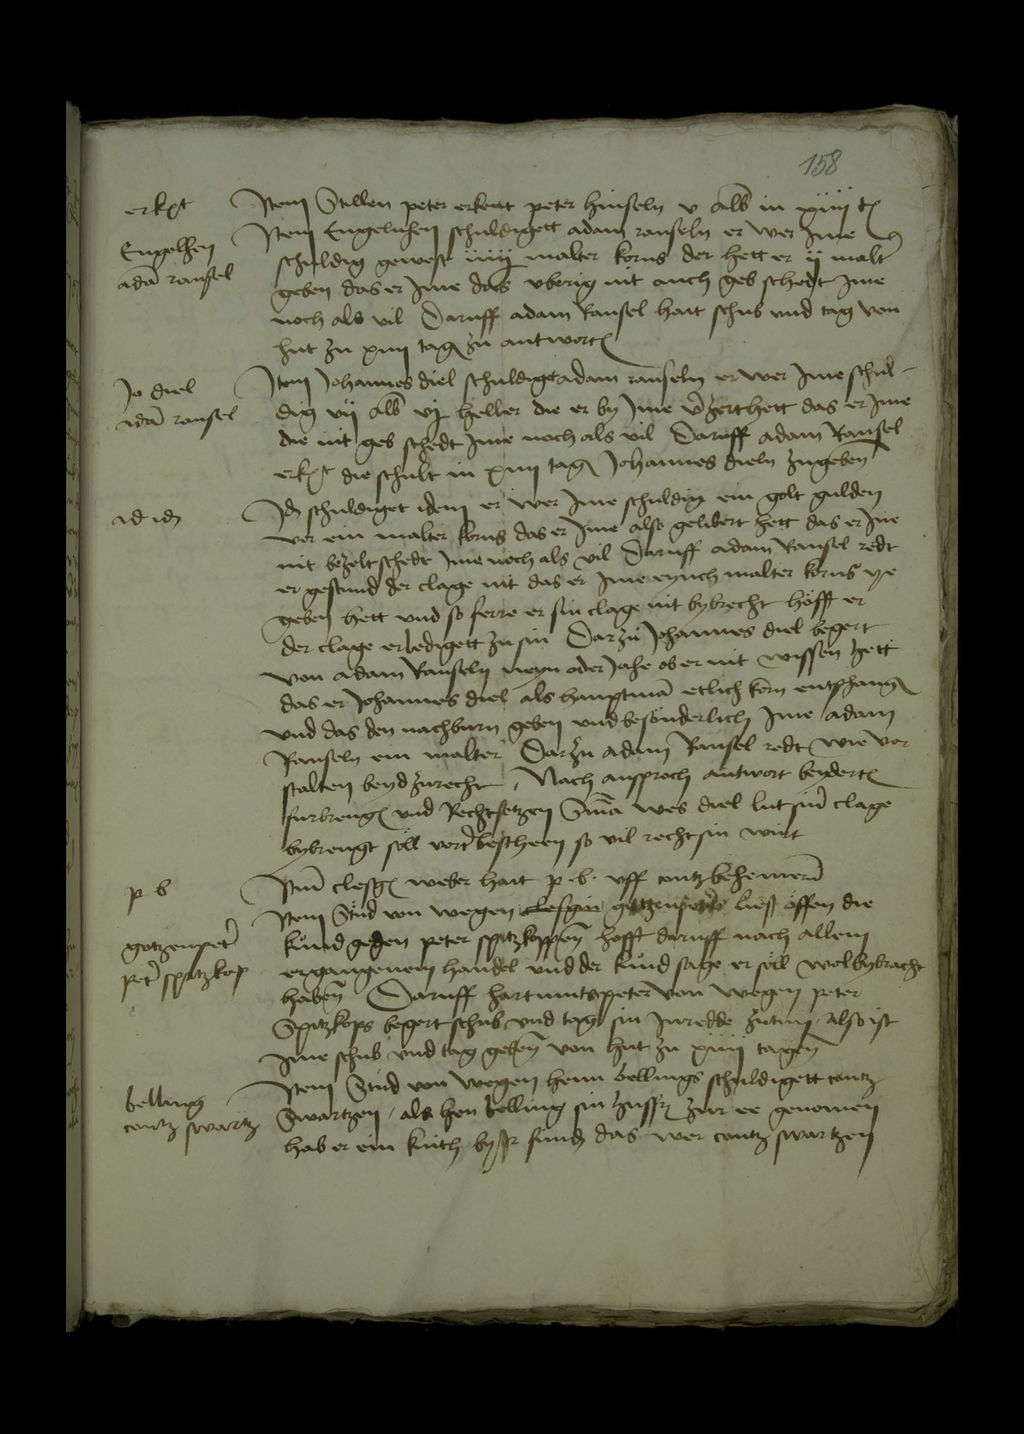 158
erkent
Item Stillen peter erkent peter hinseln v alb in xiiii t
Engelhen
adam ransel
Item Engelnhen schuldigett adam ranseln er wer Ime
schuldig gewest iiii malter korns der hett er ij malter
geben das er Ime das vberig nit auch geb schedt Ime
noch als vil Daruff adam Ransel hait schub vnd tag von
hut zu xiiii tagen zu antworten
Jo diel
adam ransel
Item Johannes diel schuldiget adam ranseln er wer Ime schul-
dig vij alb vj heller die er by Ime verzerthett das er Ime
die nit geb schedt Ime noch als vil Daruff adam Ransel
erkent die schult in xiiii tagen Johannes dieln zugeben
id idem
Idem schuldiget idem er wer Ime schuldig ein golt gulden
vor ein malter korns das er Ime also gelibert hett das er Ime
nit bezelt schedt Ime noch als vil Daruff adam Ransel redt
er gestund der clage nit das er Ime eynich malter korns ye
geben hett vnd so ferre er sin clage nit bybrecht hofft er
der clage erledigett zu sin Darzu Johannes diel begert
von adam Ranseln neyn oder Jahe ob er nit wissen hett
das er Johannes diel als hauptman etlich korn entphangen
vnd das den nachburn geben vnd besonderlich Ime adam
Ranseln ein malter Darzu adam Ransel redt wie vor
stalten beyd zurecht Nach ansproch antwort beyderten
furbrengen vnd Rechtsetzen Sententia wes diel lut siner clage
bybrengt soll verer bescheen so vil recht sin wirt
p b
Item clesgen weber hait p. b. uff contz behemern
gotzenpeter
peter spitzkop
Item Stud von wegen clesgin gotzenpeters liess offen die
kund gegen peter spitzkoppen hofft daruff nach allem
ergangenem handel vnd der kund sage er soll wol bybracht
haben Daruff hartmutspeter von wegen peter
Spitzkops begert schub vnd tag sin Inredde zutun also ist
Ime schub vnd tag geben von hut zu xiiii tagen
belling
contz swartz
Item Stud von wegen henn bellings schuldigett contz
Swartzen als hen belling sin husfr zur ee genomen
hab er ein kuch by Ir funden das wer contz swartzen